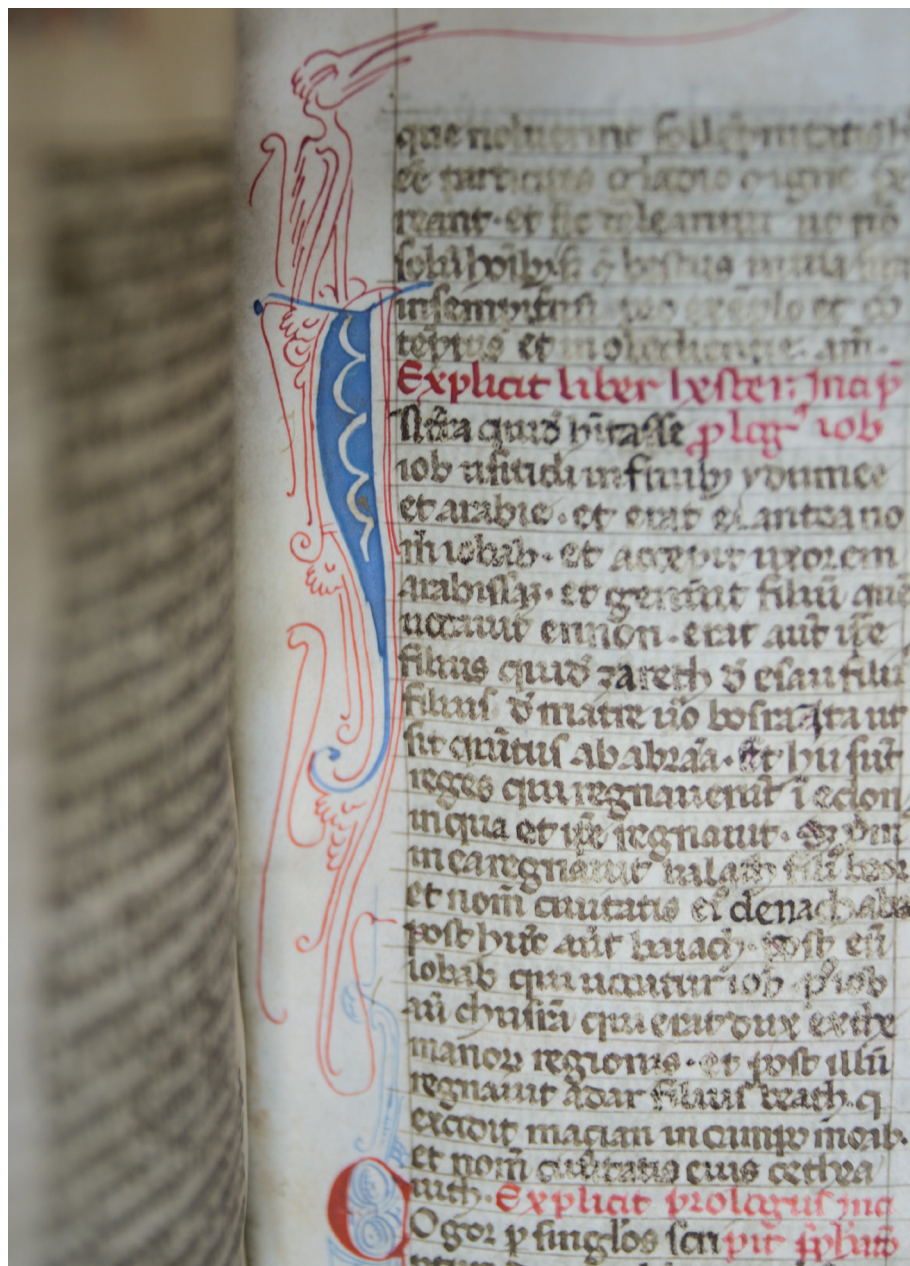 que noluerint sollẽpnitatis h
ee particeps gladio et igne de
reant. et sic deleantur ut nõ
solũ hoĩbus sꝫ et bestiis inuia sit
insempitnũ pro exẽplo et cõ
teptus et inobedientie. am̃.
Explicit liber hester. Incip̃
In tr̃a quid̃ hĩtasse ꝓlog̃ iob
iob ausitidi in finibꝫ ydumee
et arabie. et erat ei antea no
m̃ iobab. et accepit uxorem
arabissã. et genuit filiũ quẽ
uocauit ennon. erat aut̃ ip̃e
filius quid̃ zareth d̃ esau filii
filius d̃ matre uõ bosra. ita ut
sit quĩtus ab abraã. Et hii sũt
reges qui regnauerũt ĩ edon
in qua et ip̃e regnauit.
in ea regnauit balach fili beor
et nom̃ ciuitatis eiꝰ denach aba
post hũc aũt balach. post eũ
iobab qui uocatur iob. p̃ iob
aũ chusrã qui erat dux exthe
manoꝝ regionis. et post illũ
regnauit adar filius beath. q
excidit macian in campo moab.
et nom̃ ciuitatis eius cethra
uith. Explicit prologus inc
Ogor ꝑ singlos scri pit